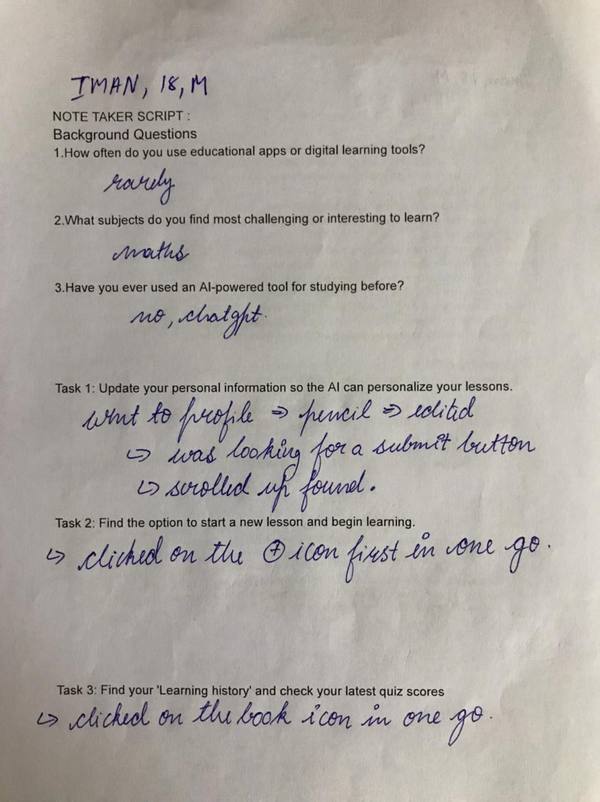 IMAN, 18, M
NOTE TAKER SCRIPT :
Background Questions
1.How often do you use educational apps or digital learning tools?
rarely
2.What subjects do you find most challenging or interesting to learn?
maths
3.Have you ever used an AI-powered tool for studying before?
no, chatgpt.
Task 1: Update your personal information so the AI can personalize your lessons.
went to profile ⇒ pencil ⇒ edited
↳ was looking for a submit button
↳ scrolled up found.
Task 2: Find the option to start a new lesson and begin learning.
↳ clicked on the ⊕ icon first in one go.
Task 3: Find your 'Learning history' and check your latest quiz scores
↳ clicked on the book icon in one go.